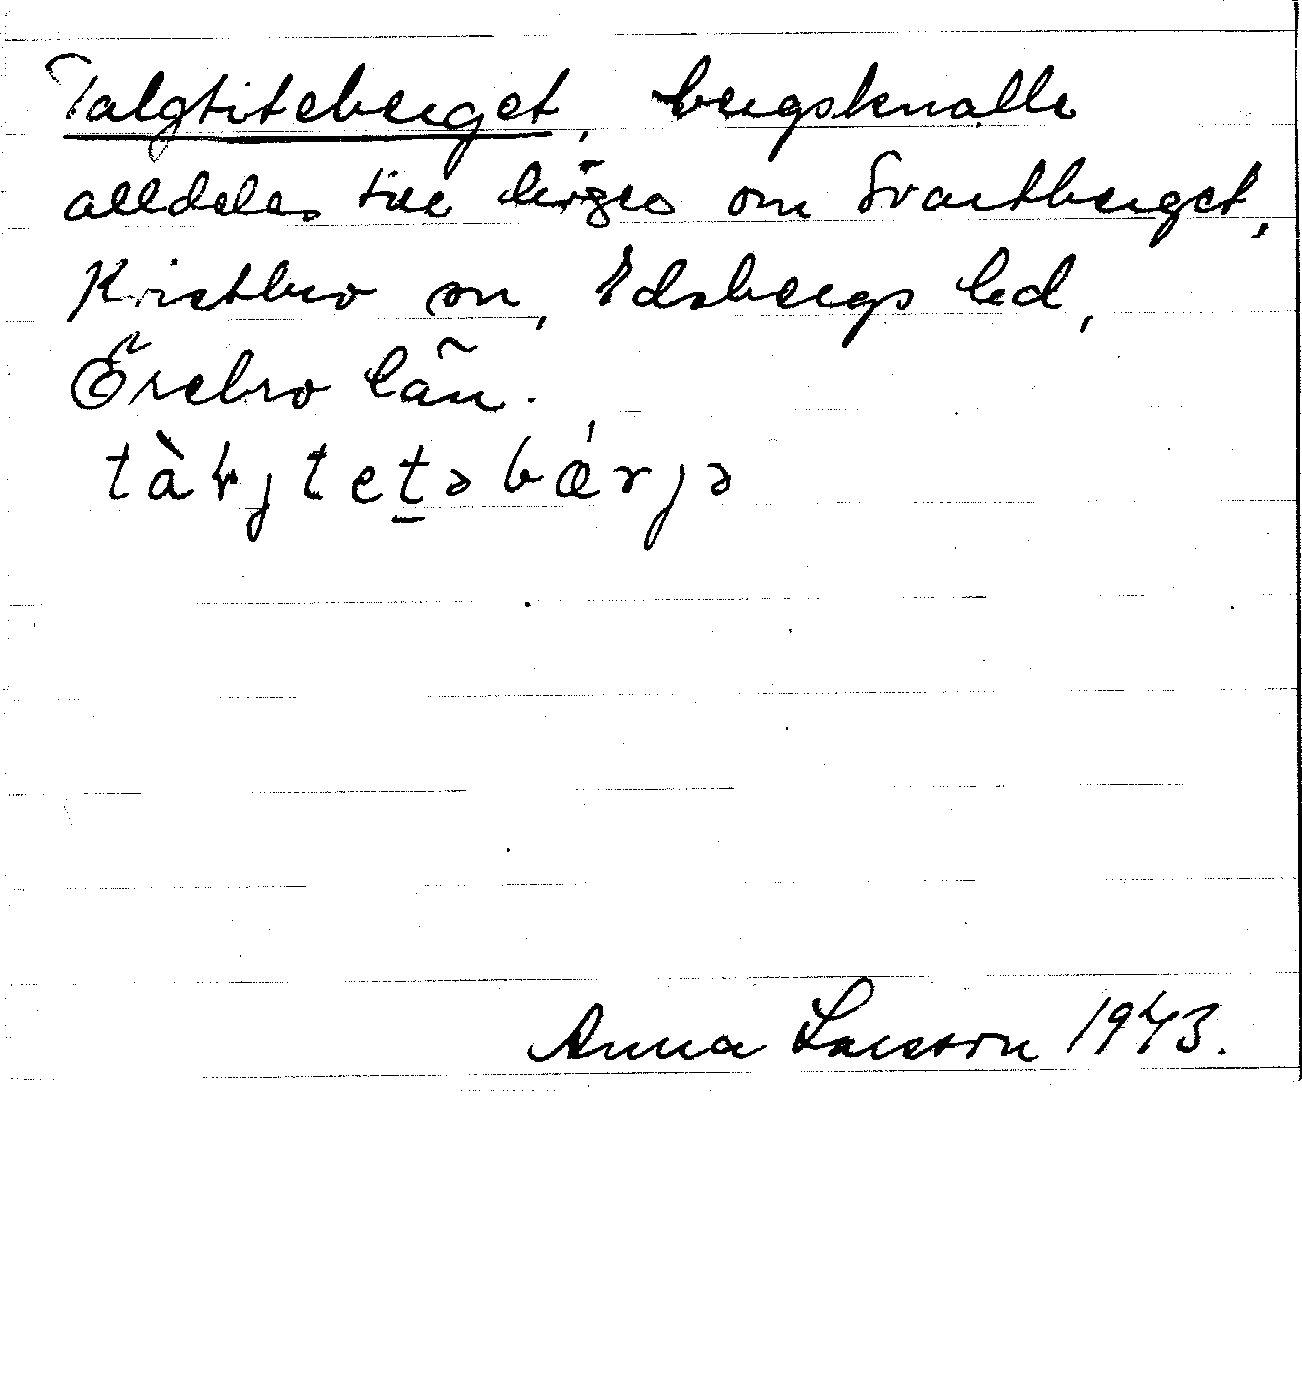 Talgtiteberget, bergsknalle
alldeles till höger om Svartberget,
Kvistbro sn, Edsbergs hd,
Örebro län.
tàɫjtetəbǽrjə
Anna Larsson 1943.